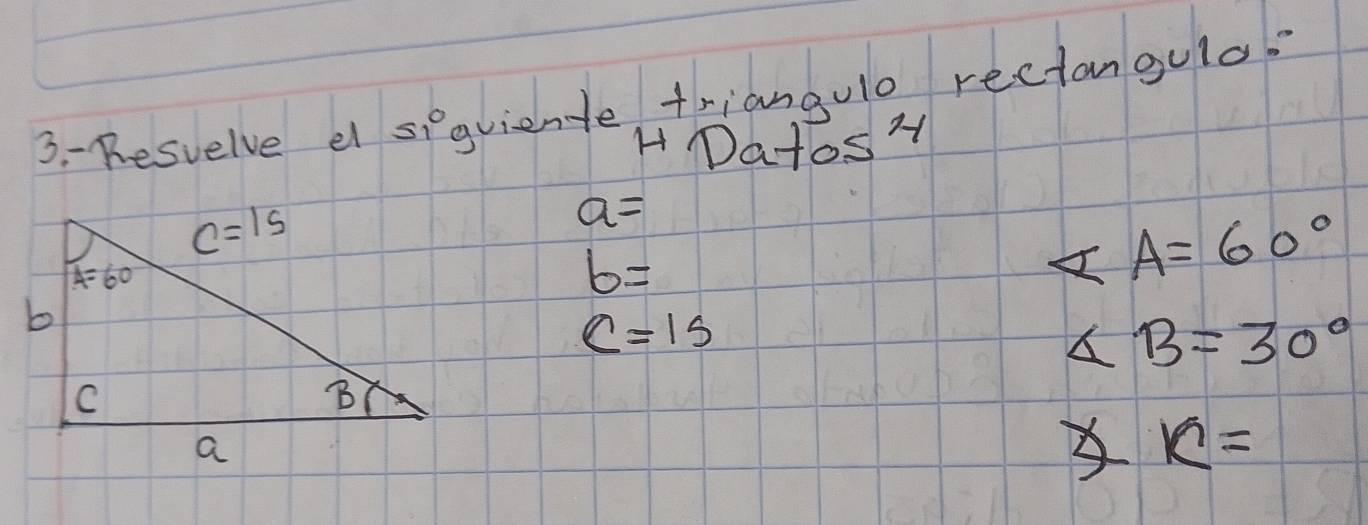 3.- Resuelve el siguiente triangulo rectangulo:
"Datos"
c=15
A=60
b
C
B
a
a=
b=
C=15
∢ A=60°
∢ B=30°
∢ C=